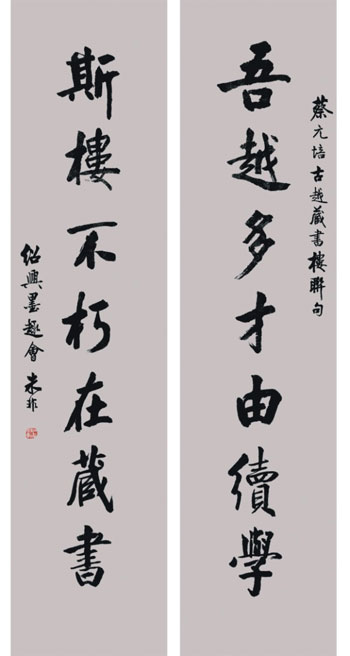 蔡元培古越藏書樓聯句
吾越多才由續學
斯樓不朽在藏書
紹興墨趣會